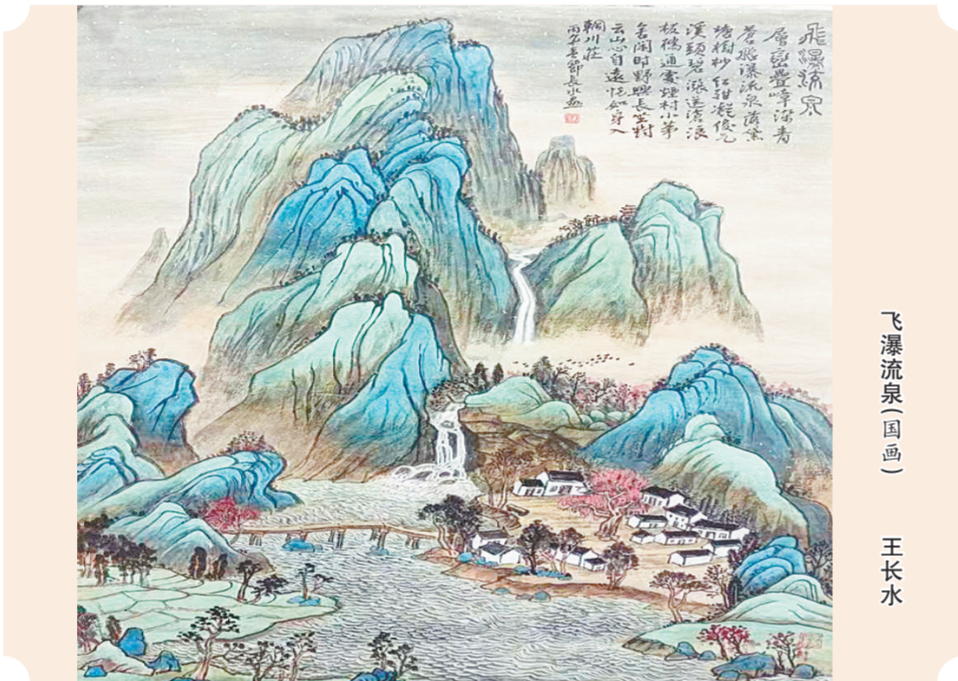 飛瀑流泉
層巒疊嶂深青
蒼飛瀑流泉落紫
塘樹杪红甜凝俊气
溪頭碧漲送清浪
板橋通處煙村小茅
舍闲時野興長坐对
云山心自遠恍如身入
輞川莊
丙午春節長水画
飞瀑流泉(国画)
王长水